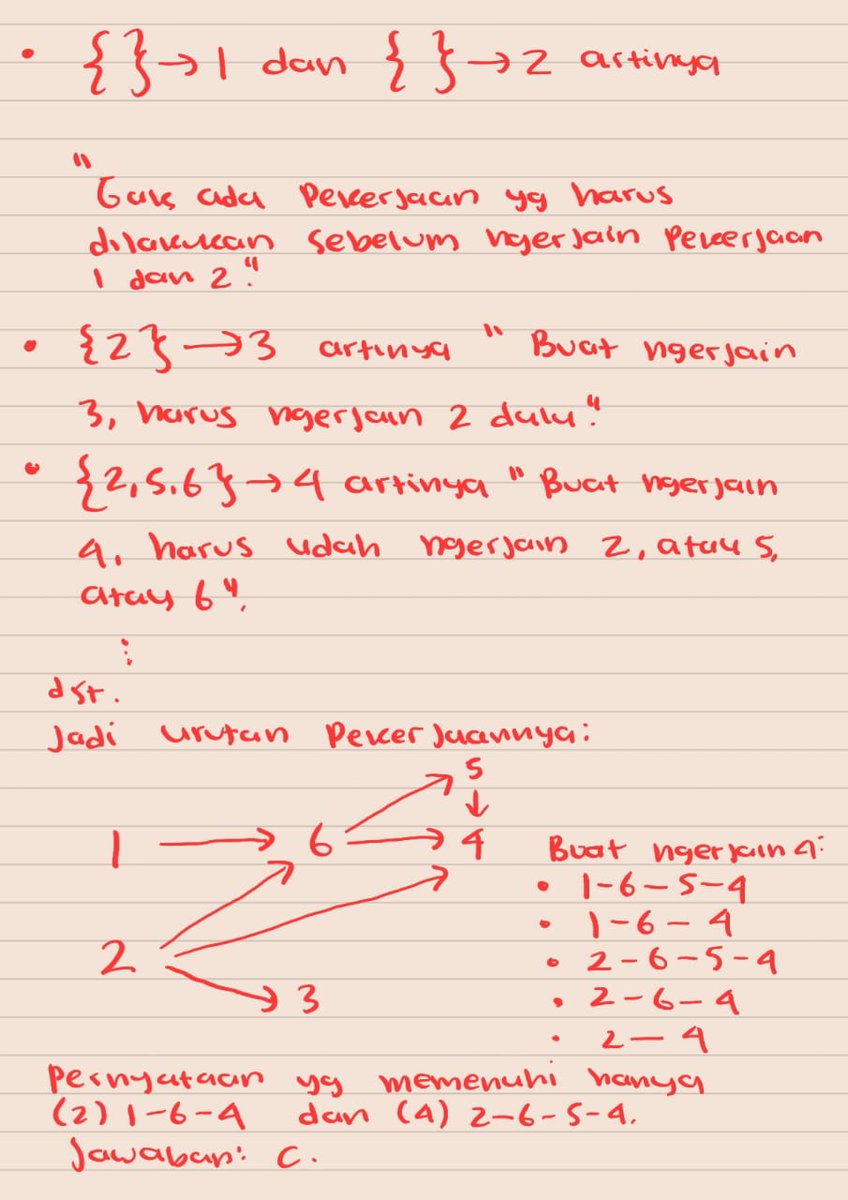 • { } → 1 dan { } → 2 artinya
"Gak ada pekerjaan yg harus
dilakukan sebelum ngerjain pekerjaan
1 dan 2."
• {2} → 3 artinya "Buat ngerjain
3, harus ngerjain 2 dulu."
• {2,5,6} → 4 artinya "Buat ngerjain
4, harus udah ngerjain 2, atau 5,
atau 6",
⋮
dst.
Jadi urutan pekerjaannya:
5
↓
1 → 6 → 4
2
3
Buat ngerjain 4:
• 1-6-5-4
• 1-6-4
• 2-6-5-4
• 2-6-4
• 2-4
Pernyataan yg memenuhi hanya
(2) 1-6-4 dan (4) 2-6-5-4.
Jawaban: C.